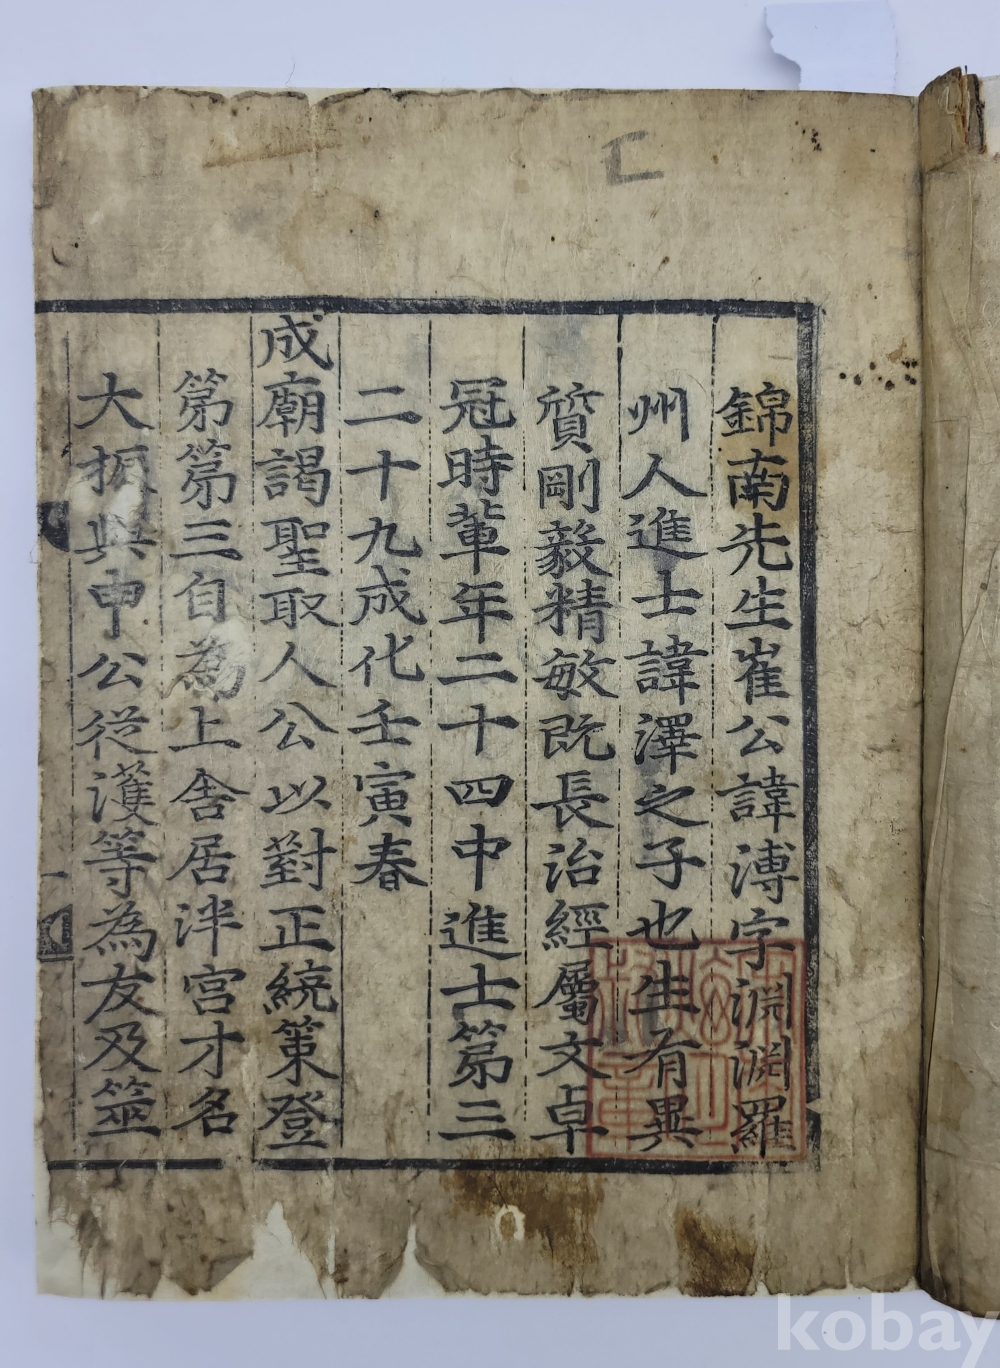 錦南先生崔公諱溥字淵淵羅
州人進士諱澤之子也生有異
質剛毅精敏既長治經屬文卓
冠時輩年二十四中進士第三
二十九成化壬寅春
成廟謁聖取人公以對正統策登
第第三自為上舍居泮宮才名
大振與申公從濩等為友及筮
kobay